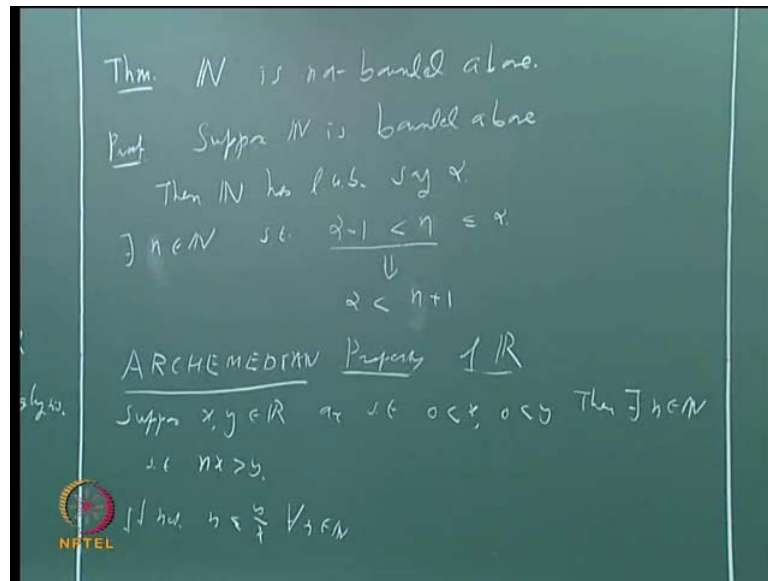 Thm. ℕ is not bounded above.
Proof Suppose ℕ is bounded above
Then ℕ has l.u.b. say α.
∃ n ∈ ℕ s.t. α-1 < n ≤ α.
⇓
α < n+1
ARCHEMEDIAN Property of ℝ
Suppose x, y ∈ ℝ are s.t. 0 < x, 0 < y Then ∃ n ∈ ℕ
s.t. nx > y.
If not. n ≤ y/x ∀ n ∈ ℕ
NPTEL